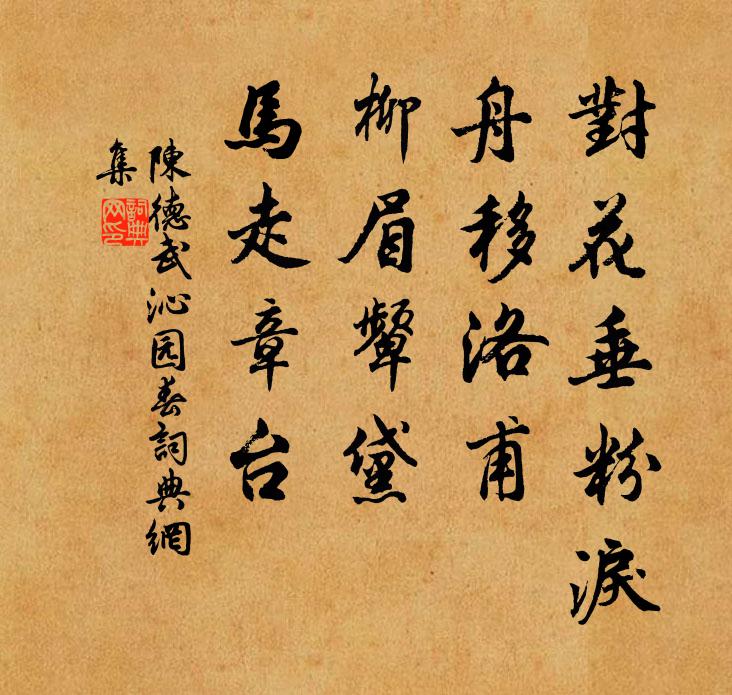 對花垂粉淚
舟移洛甫
柳眉顰黛
馬走章台
陳德武沁园春詞典網
集
詞典
网印